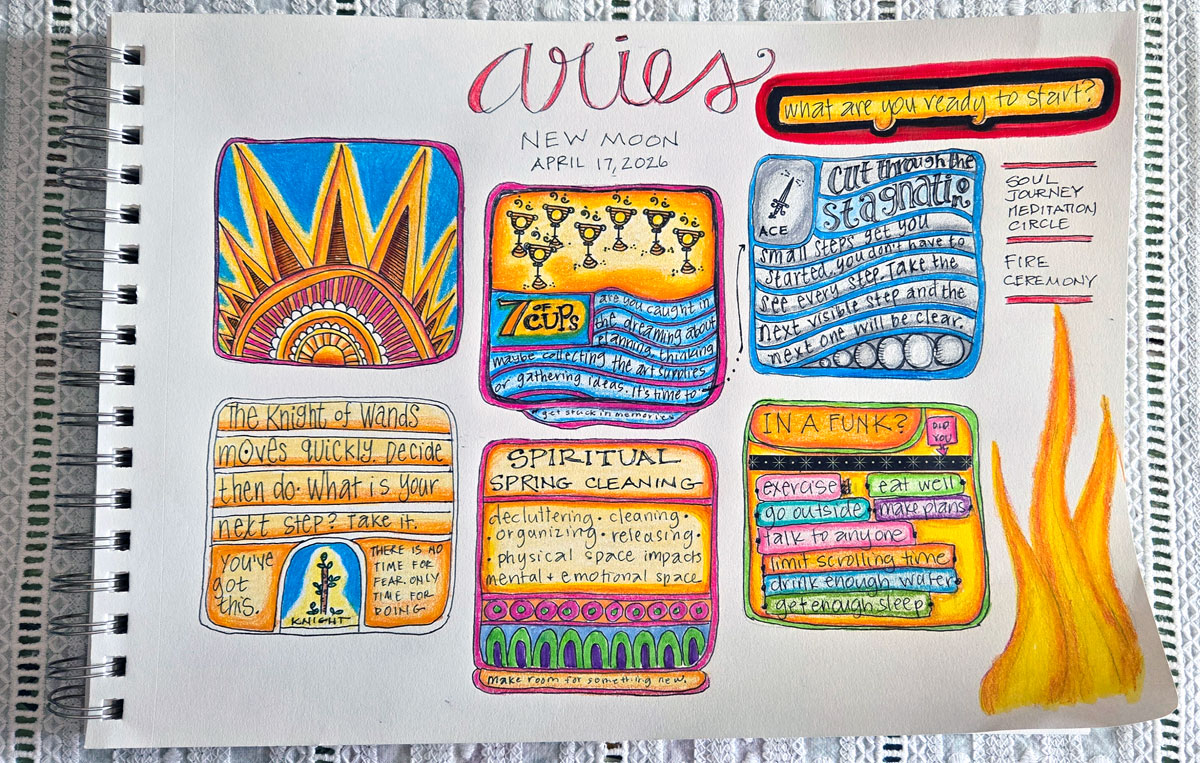 aries
what are you ready to start?
NEW MOON
APRIL 17, 2026
7 OF CUPS
are you caught in
the dreaming about
planning, thinking
maybe collecting the art supplies
or gathering ideas. It's time to
get stuck in memories
ACE
cut through the
stagnation
small steps get you
started. you don't have to
see every step. Take the
next visible step and the
next one will be clear.
SOUL
JOURNEY
MEDITATION
CIRCLE
FIRE
CEREMONY
The Knight of Wands
moves quickly. Decide
then do. What is your
next step? Take it.
you've
got
this.
KNIGHT
THERE IS NO
TIME FOR
FEAR. ONLY
TIME FOR
DOING
SPIRITUAL
SPRING CLEANING
decluttering • cleaning •
• organizing • releasing •
• physical space impacts
mental + emotional space
make room for something new.
IN A FUNK?
DID
YOU
exercise
eat well
go outside
make plans
talk to anyone
limit scrolling time
drink enough water
get enough sleep